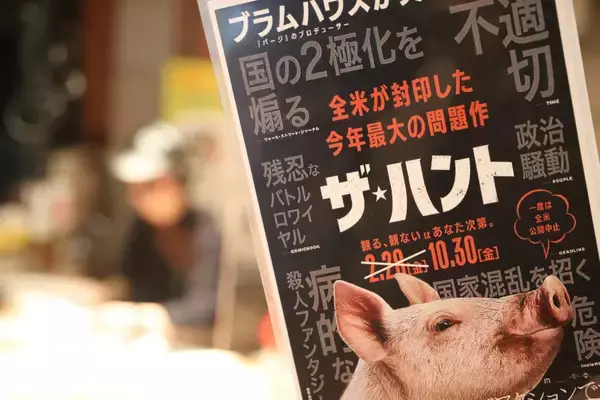 ブラムハウスが
『パージ』のプロデューサー
国の2極化を
煽る
ウォール・ストリート・ジャーナル
不適切
TIME
全米が封印した
今年最大の問題作
残忍な
バトル
ロワイヤル
COMICBOOK
政治
騒動
PEOPLE
ザ★ハント
一度は
全米
公開中止
DEADLINE
観る、観ないはあなた次第。
2.28[金] 10.30[金]
病的な
殺人ファンタジ
国家混乱を招く
危険
アクションで